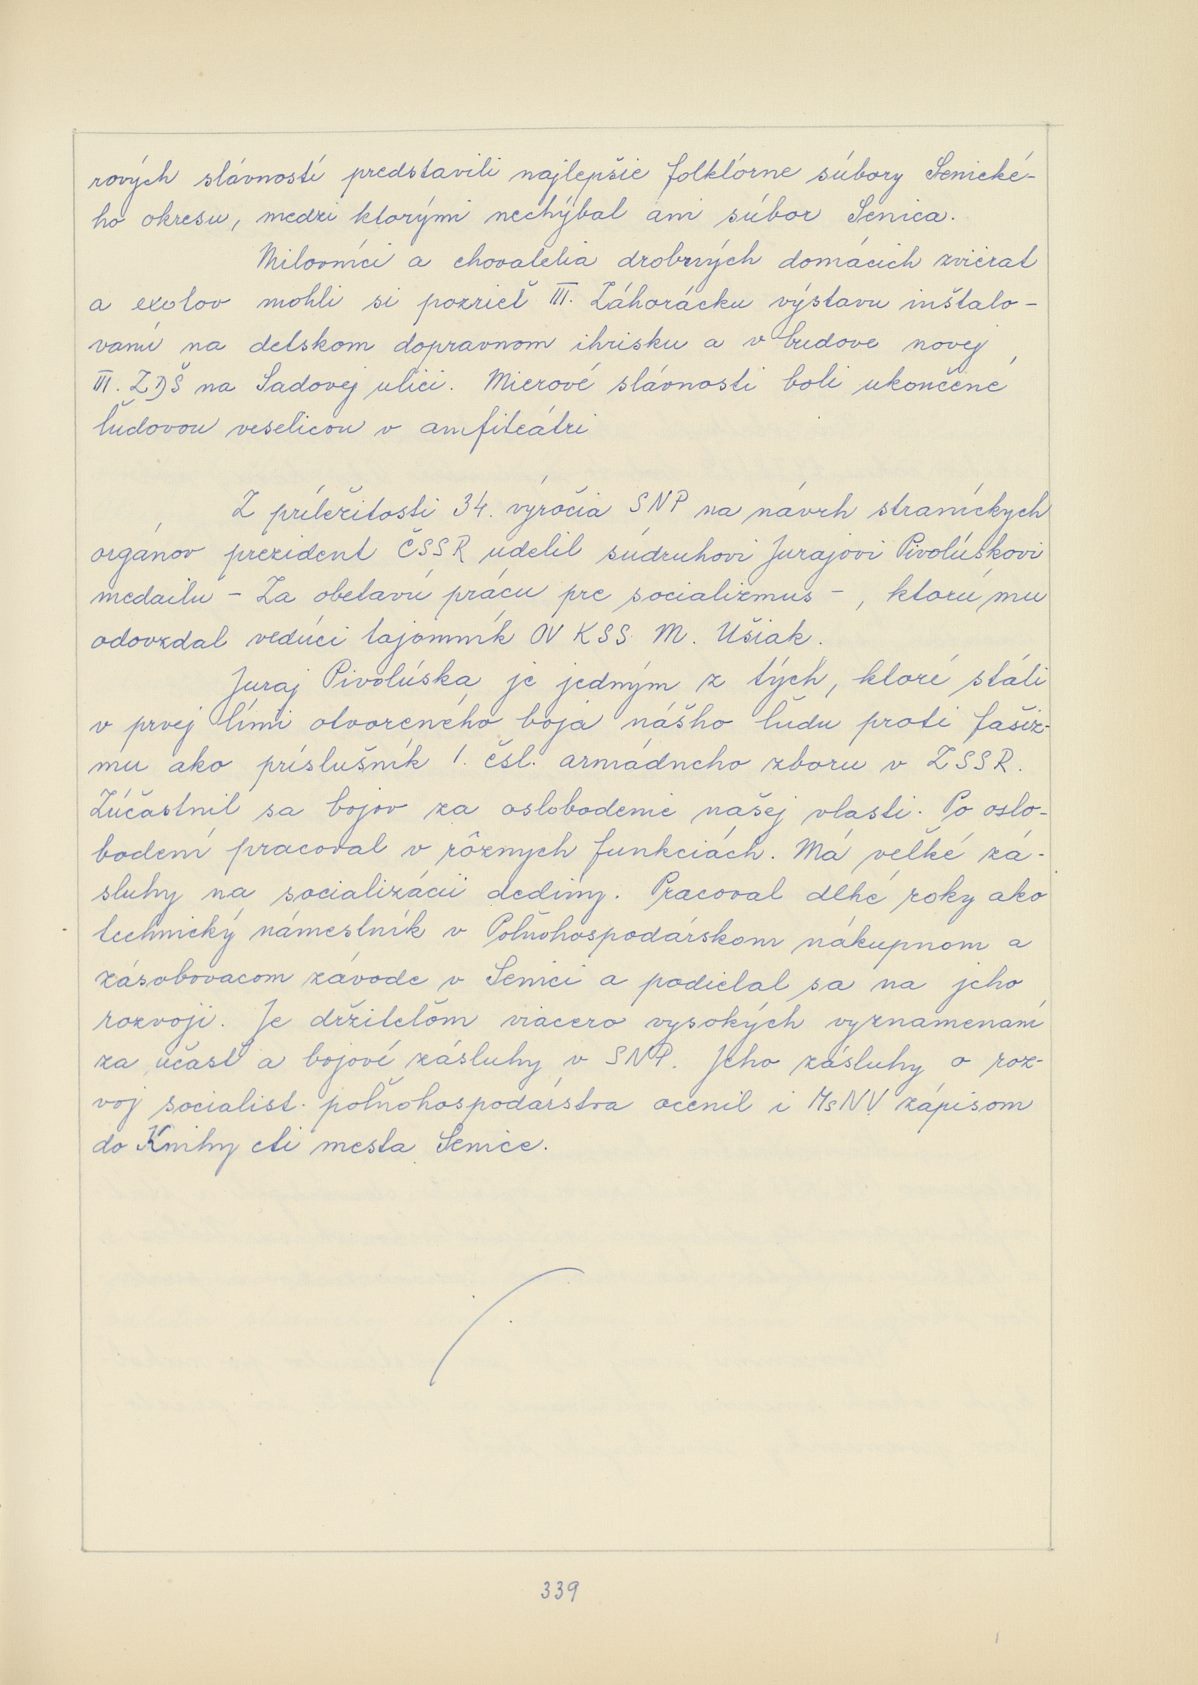 rových slávností predstavili najlepšie folklórne súbory Senické-
ho okresu, medzi ktorými nechýbal ani súbor Senica.
Milovníci a chovatelia drobných domácich zvierat
a exotov mohli si pozrieť III. Záhorácku výstavu inštalo-
vanú na detskom dopravnom ihrisku a v budove novej
III. ZDŠ na Sadovej ulici. Mierové slávnosti boli ukončené
ľudovou veselicou v amfiteátri
Z príležitosti 34. výročia SNP na návrh straníckych
orgánov prezident ČSSR udelil súdruhovi Jurajovi Pivolúskovi
medailu - Za obetavú prácu pre socializmus - , ktorú mu
odovzdal vedúci tajomník OV KSS M. Ušiak.
Juraj Pivolúska je jedným z tých, ktoré stáli
v prvej línii otvoreného boja nášho ľudu proti fašiz-
mu ako príslušník 1. čsl. armádneho zboru v ZSSR.
Zúčastnil sa bojov za oslobodenie našej vlasti. Po oslo-
bodení pracoval v rôznych funkciách. Má veľké zá-
sluhy na socializácii dediny. Pracoval dlhé roky ako
technický námestník v Poľnohospodárskom nákupnom a
zásobovacom závode v Senici a podielal sa na jeho
rozvoji. Je držiteľom viacero vysokých vyznamenaní
za účasť a bojové zásluhy v SNP. Jeho zásluhy o roz-
voj socialist. poľnohospodárstva ocenil i MsNV zápisom
do Knihy cti mesta Senice.
339